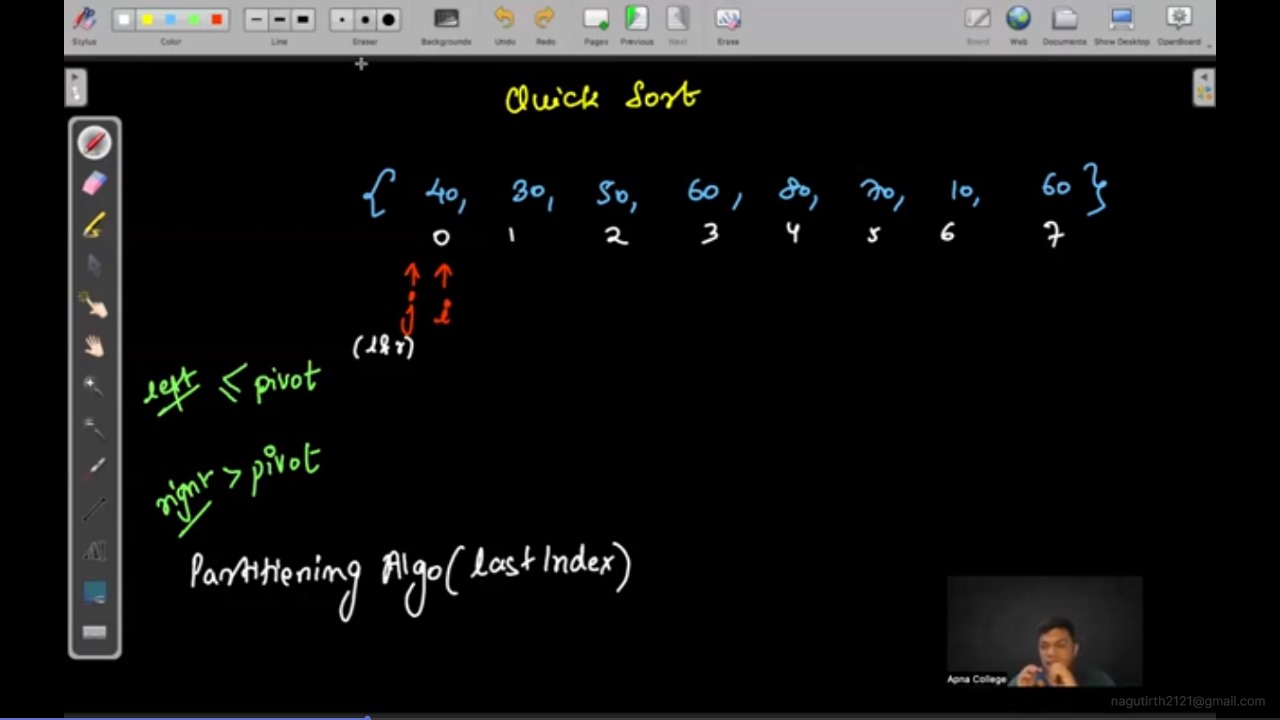 Stylus Color Line Eraser Backgrounds Undo Redo Pages Previous Next Erase Board Web Documents Show Desktop OpenBoard
Quick Sort
{ 40, 30, 50, 60, 80, 70, 10, 60 }
0 1 2 3 4 5 6 7
j i
left ≤ pivot
right > pivot
Partitiening Algo(last Index)
Apna College
nagutirth2121@gmail.com